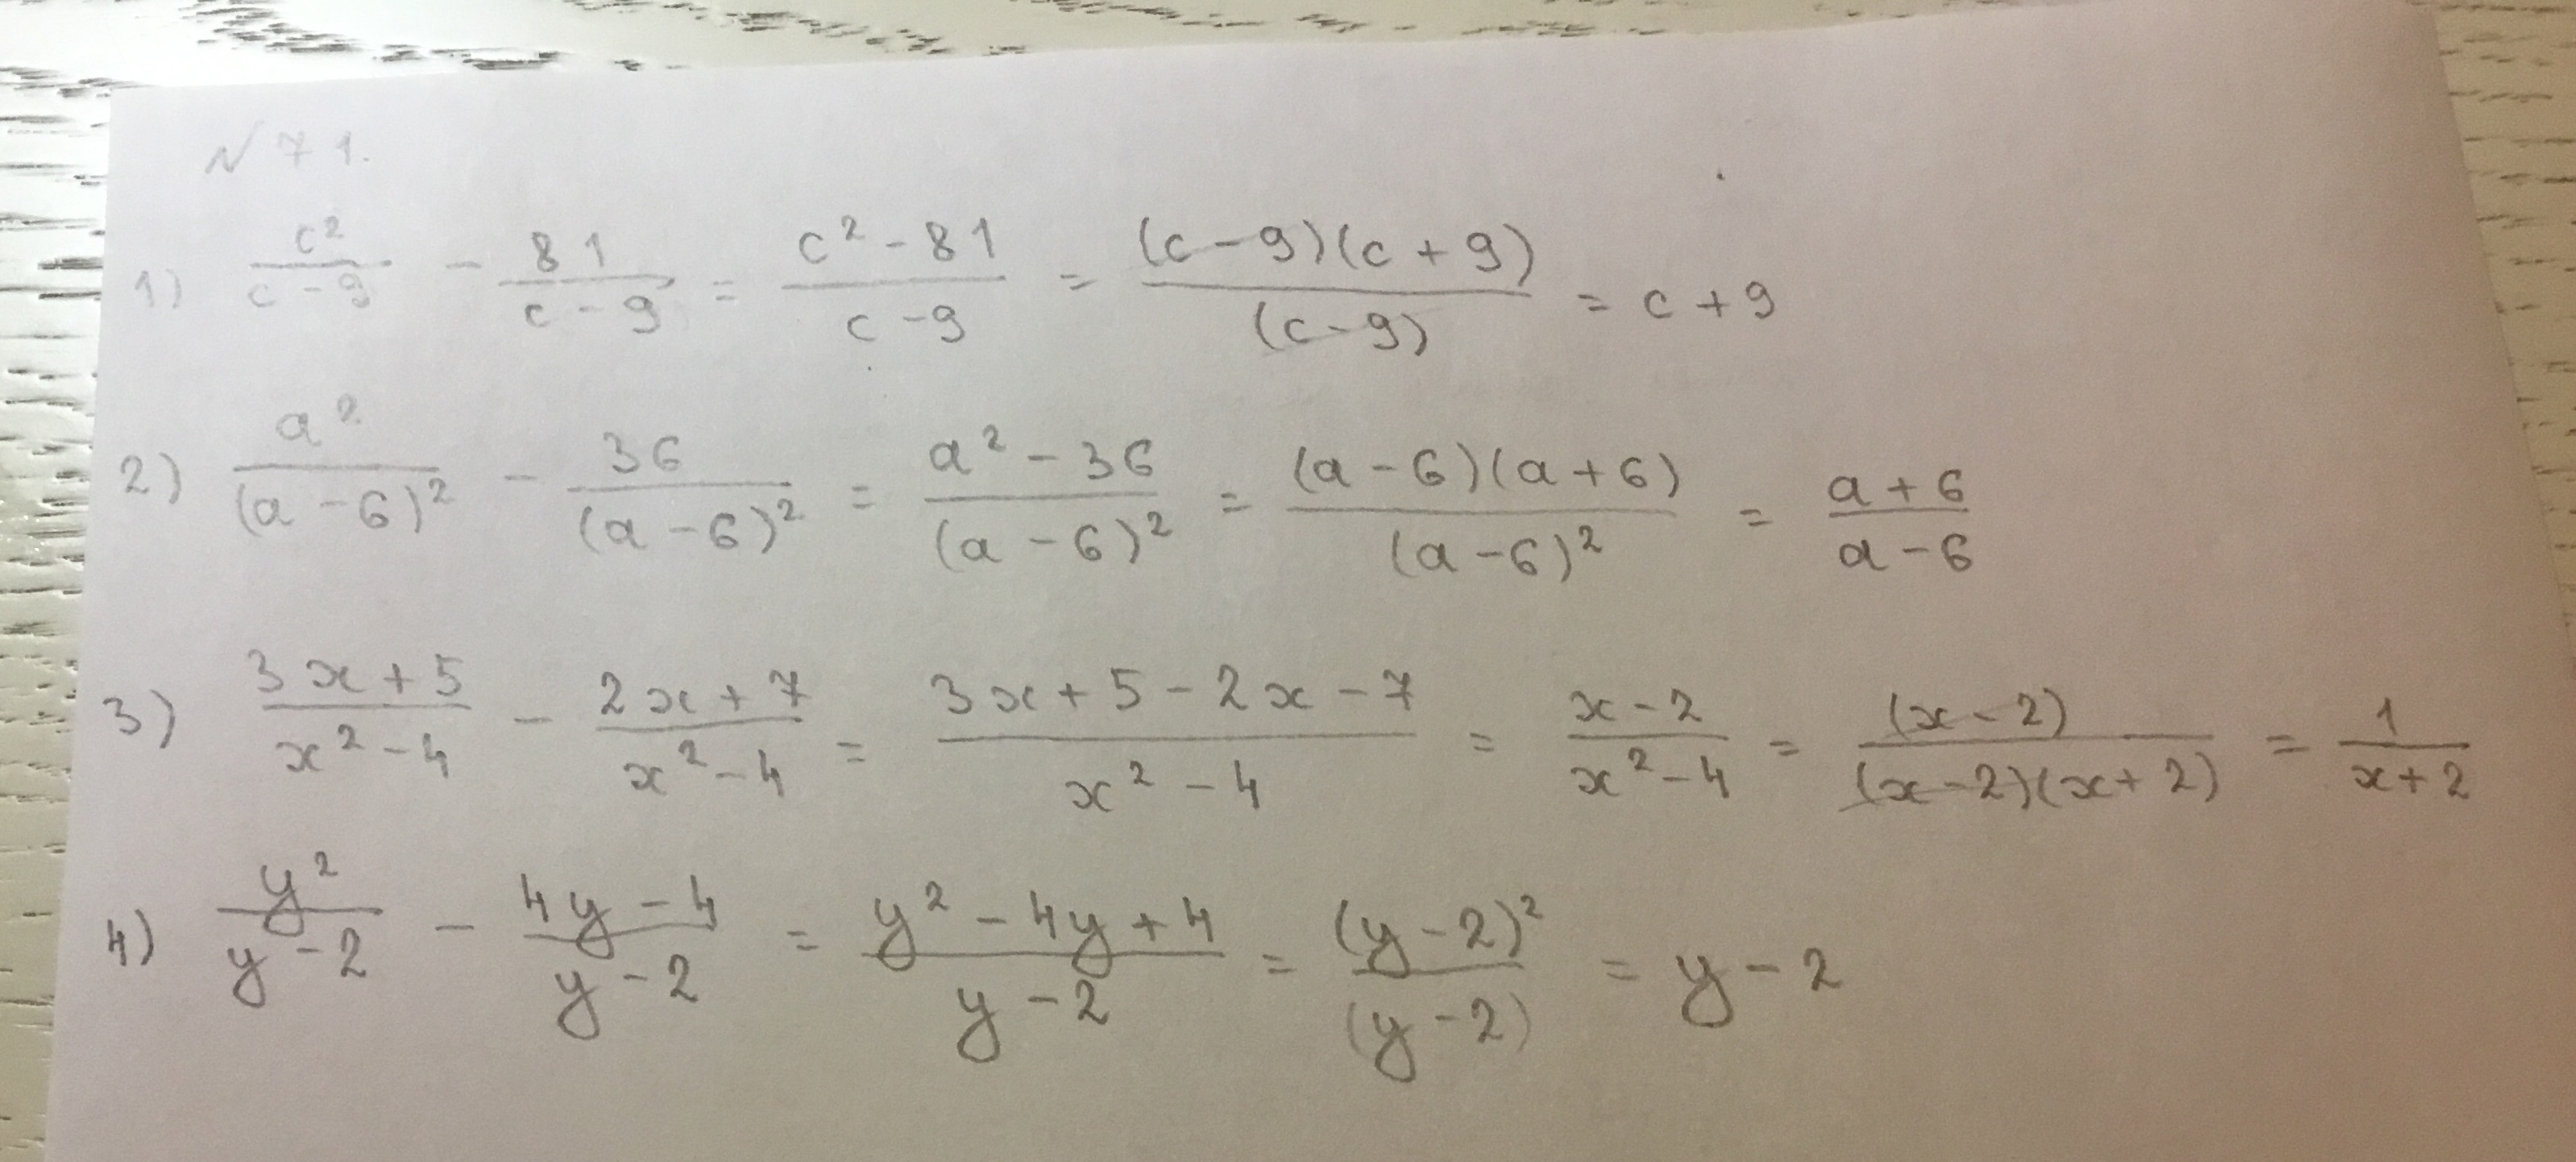 № 71.
1) \frac{c^2}{c-9} - \frac{81}{c-9} = \frac{c^2-81}{c-9} = \frac{(c-9)(c+9)}{(c-9)} = c+9
2) \frac{a^2}{(a-6)^2} - \frac{36}{(a-6)^2} = \frac{a^2-36}{(a-6)^2} = \frac{(a-6)(a+6)}{(a-6)^2} = \frac{a+6}{a-6}
3) \frac{3x+5}{x^2-4} - \frac{2x+7}{x^2-4} = \frac{3x+5-2x-7}{x^2-4} = \frac{x-2}{x^2-4} = \frac{(x-2)}{(x-2)(x+2)} = \frac{1}{x+2}
4) \frac{y^2}{y-2} - \frac{4y-4}{y-2} = \frac{y^2-4y+4}{y-2} = \frac{(y-2)^2}{(y-2)} = y-2